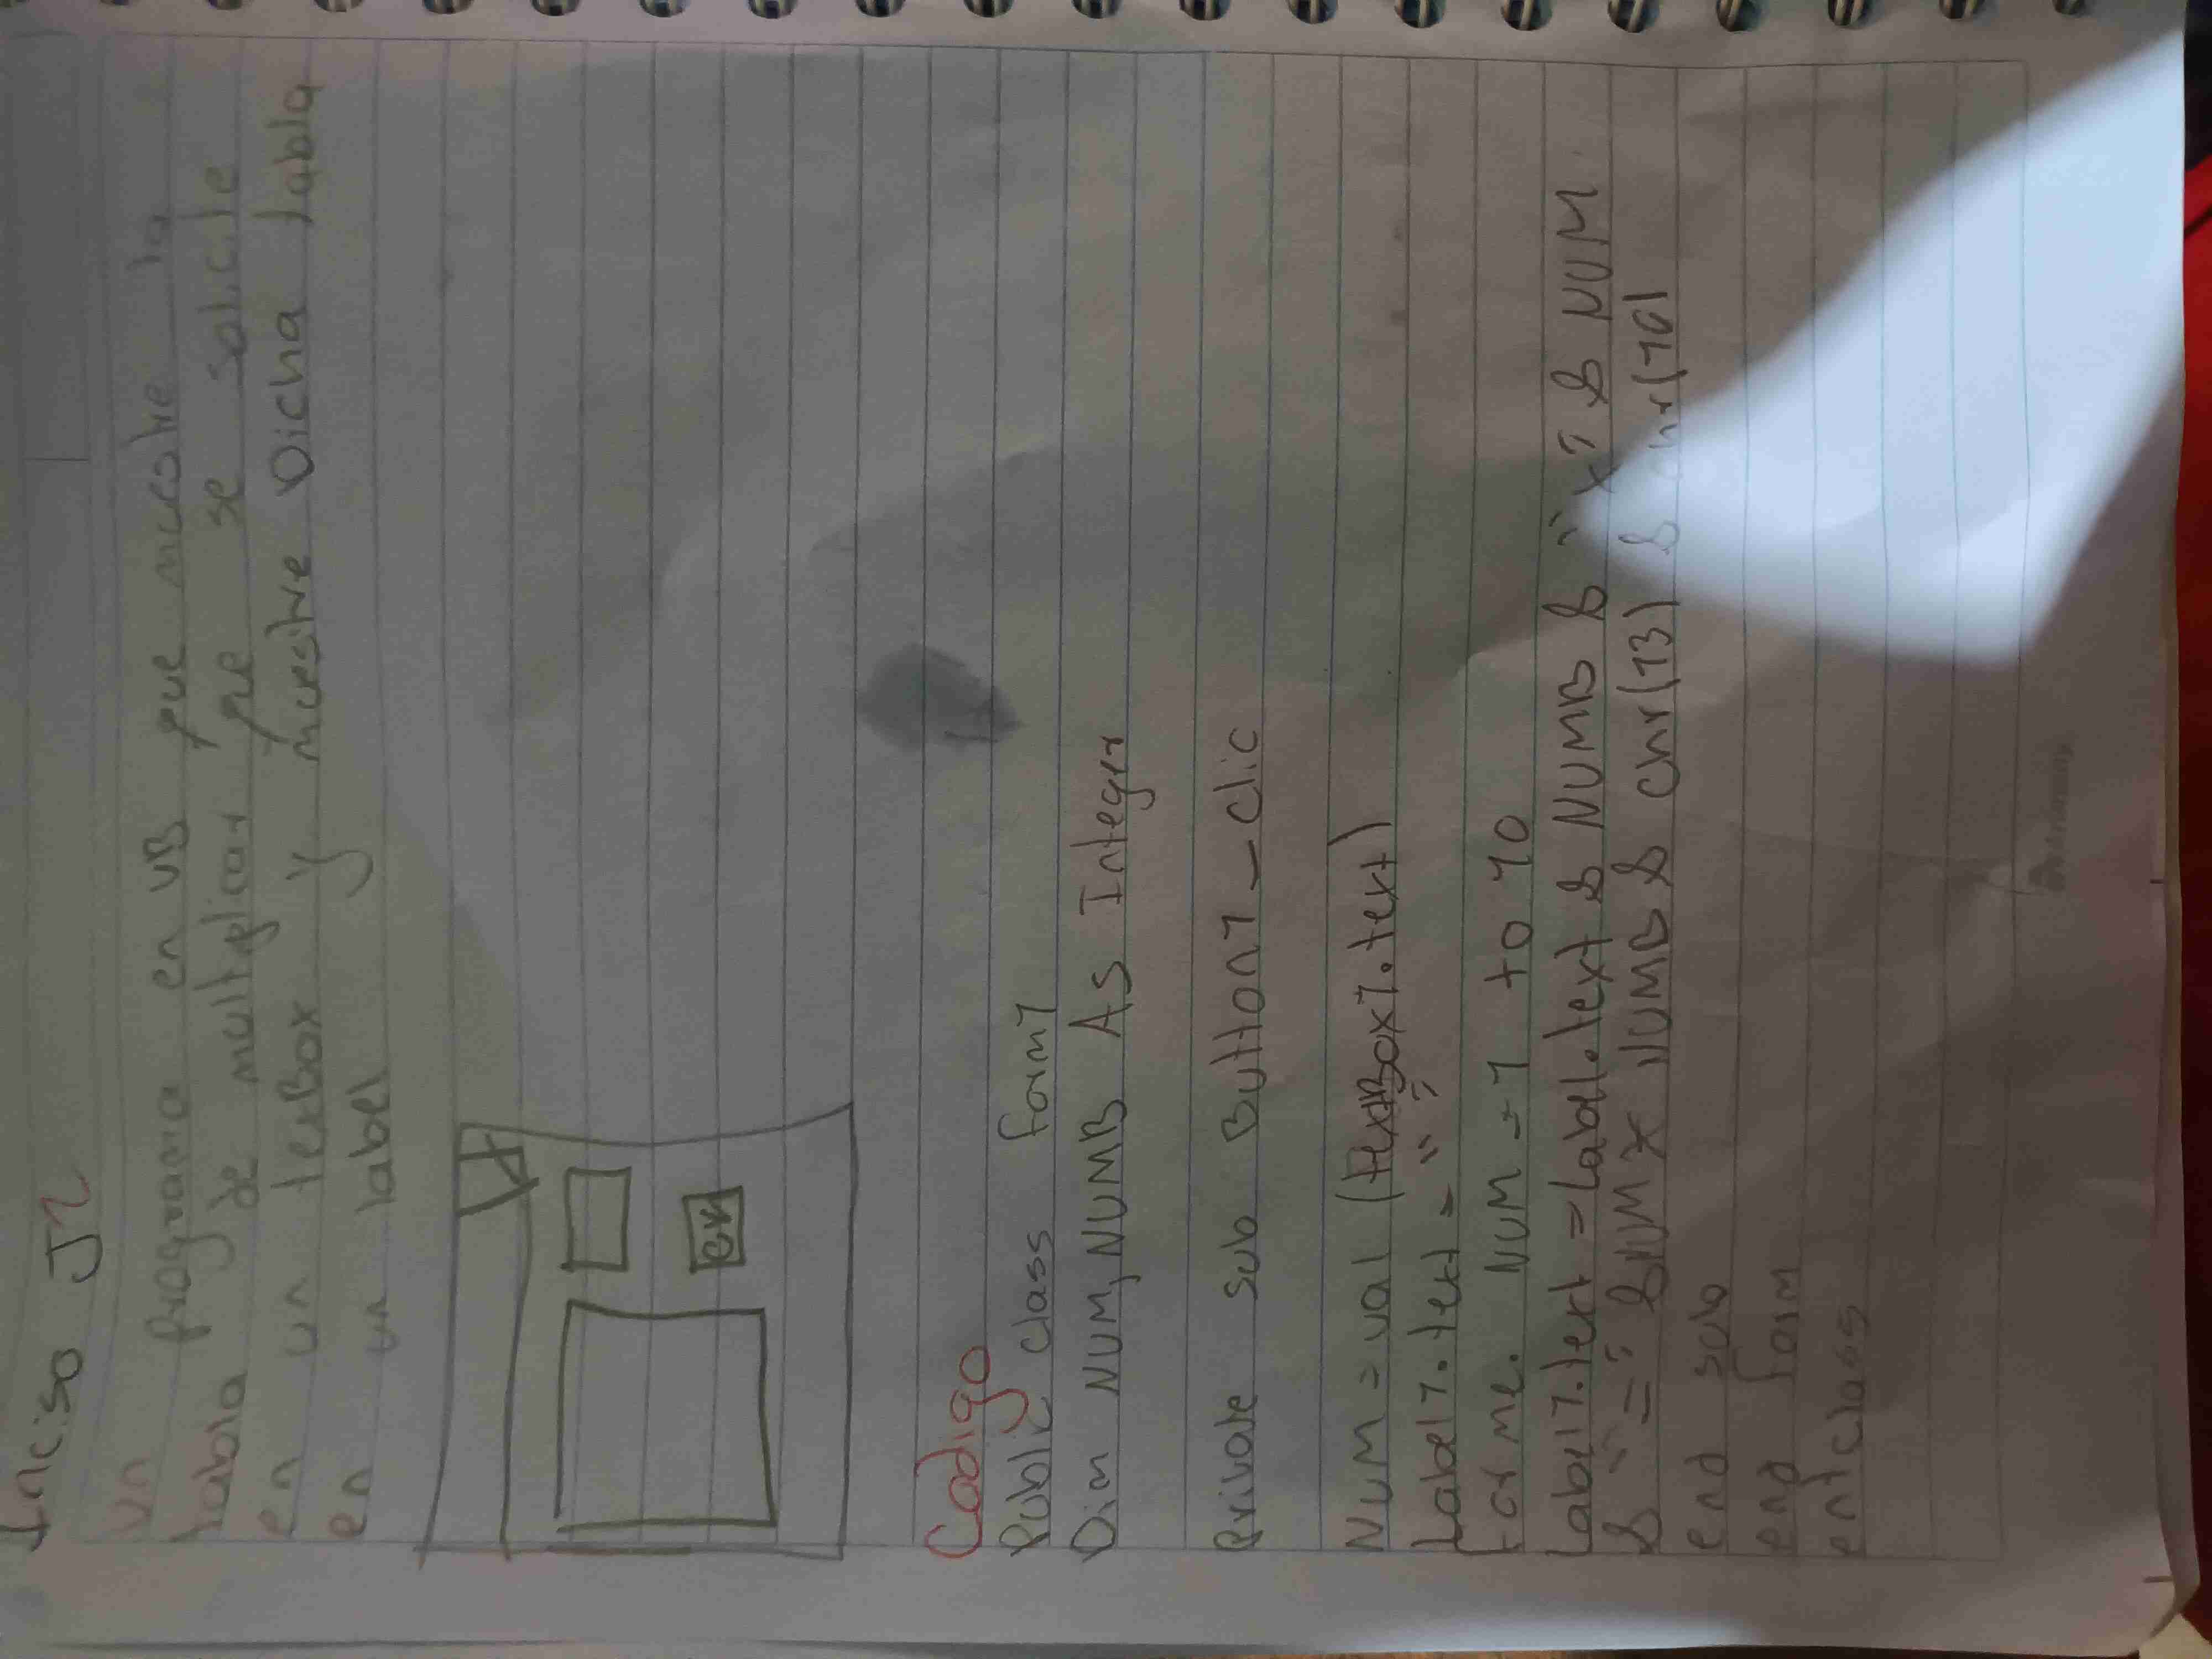 Inciso J2
Un programa en VB que muestre la
tabla de multiplicar que se solicite
en un texBox y muestre Dicha tabla
en un label
Codigo
Public class form1
Dim NUM, NUMB As Integer
Private sub Button1_clic
NUM = val (textBox1.text)
Label1.text = " "
For me. NUM = 1 to 10
Label1.text = Label.text & NUMB & "x" & NUM
& "=" & NUM * NUMB & chr(13) & chr(10)
end sub
end form
entclass